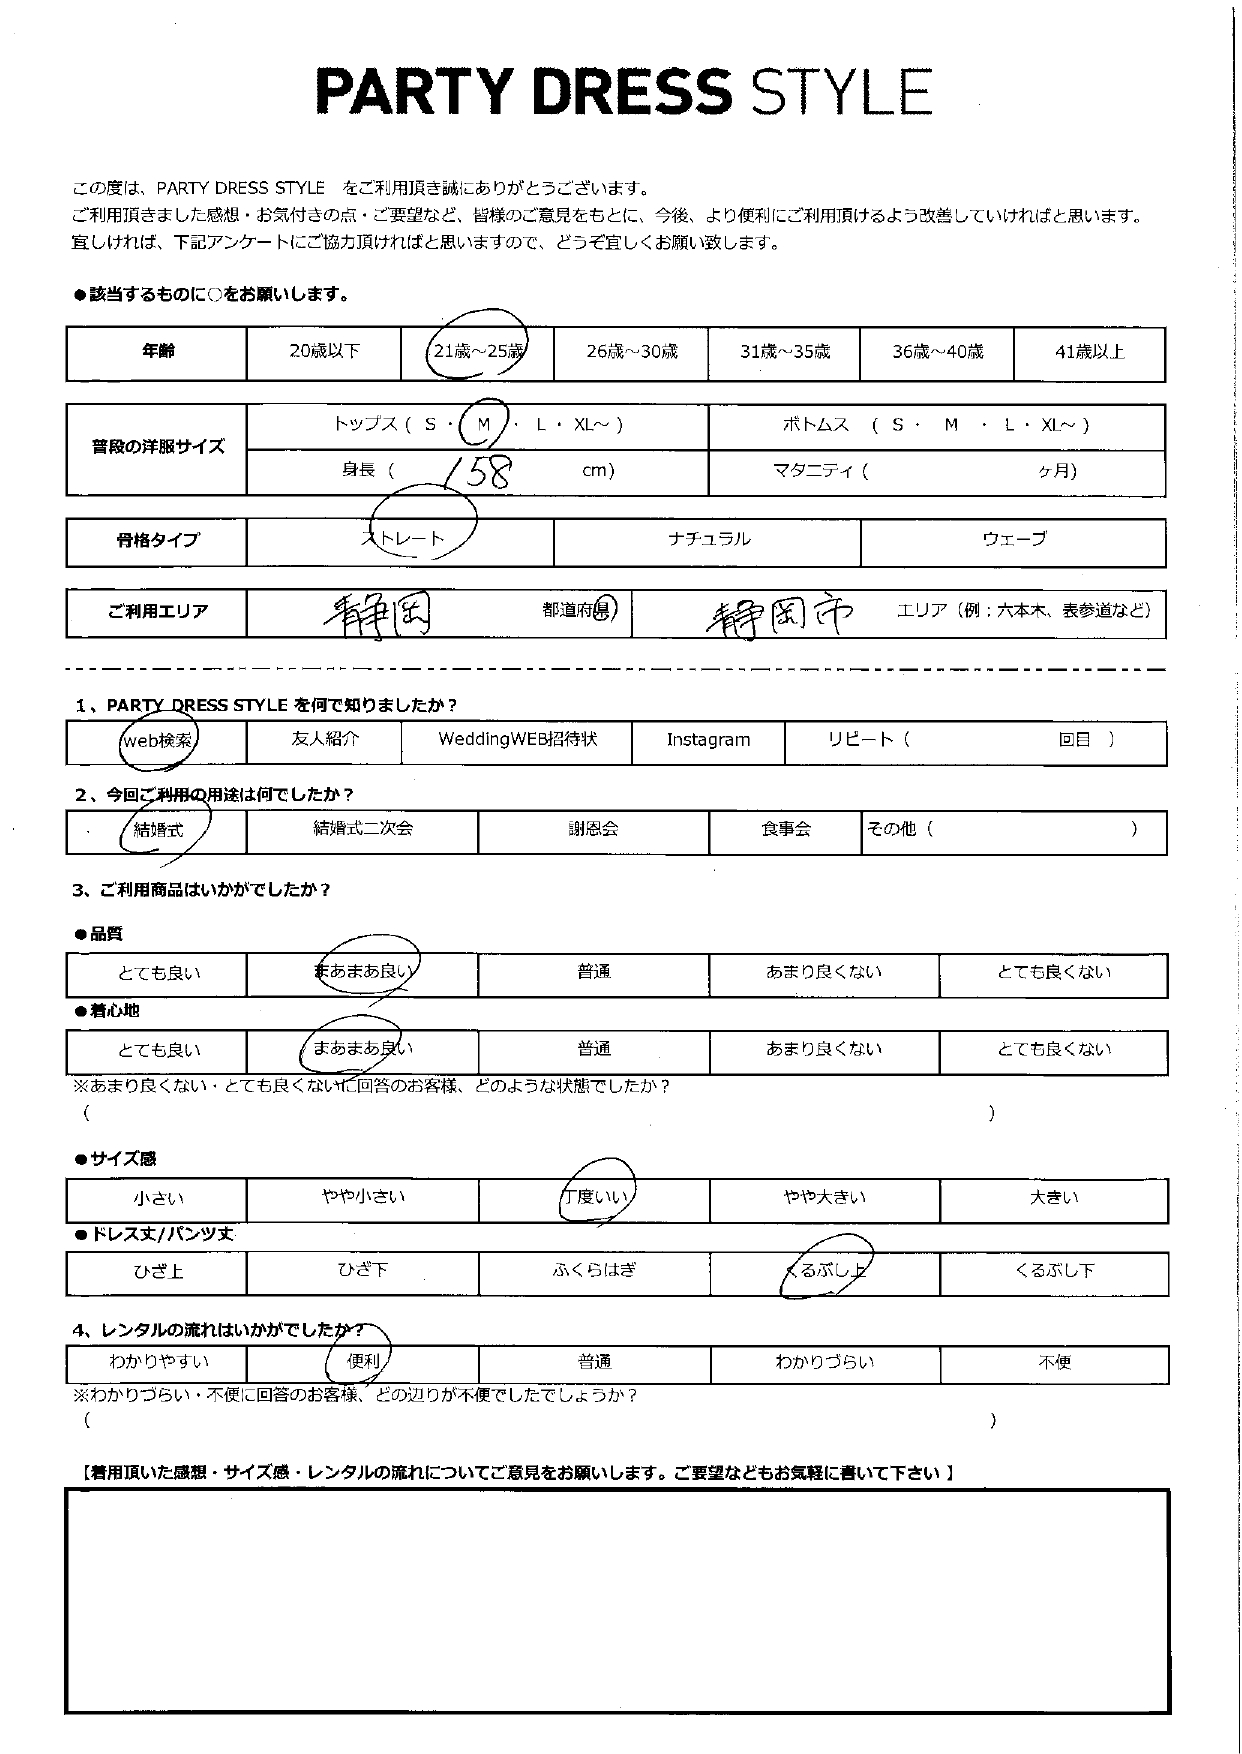 PARTY DRESS STYLE
この度は、PARTY DRESS STYLE をご利用頂き誠にありがとうございます。
ご利用頂きました感想・お気付きの点・ご要望など、皆様のご意見をもとに、今後、より便利にご利用頂けるよう改善していければと思います。
宜しければ、下記アンケートにご協力頂ければと思いますので、どうぞ宜しくお願い致します。
●該当するものに○をお願いします。
年齢 20歳以下 21歳～25歳 26歳～30歳 31歳～35歳 36歳～40歳 41歳以上
普段の洋服サイズ トップス ( S ・ M ・ L ・ XL～ ) ボトムス ( S ・ M ・ L ・ XL～ )
身長 ( 158 cm) マタニティ ( ヶ月)
骨格タイプ ストレート ナチュラル ウェーブ
ご利用エリア 静岡 都道府県) 静岡市 エリア（例：六本木、表参道など）
1、PARTY DRESS STYLE を何で知りましたか？
web検索 友人紹介 WeddingWEB招待状 Instagram リピート（ 回目 ）
2、今回ご利用の用途は何でしたか？
結婚式 結婚式二次会 謝恩会 食事会 その他（ ）
3、ご利用商品はいかがでしたか？
●品質
とても良い まあまあ良い 普通 あまり良くない とても良くない
●着心地
とても良い まあまあ良い 普通 あまり良くない とても良くない
※あまり良くない・とても良くないに回答のお客様、どのような状態でしたか？
( )
●サイズ感
小さい やや小さい 丁度いい やや大きい 大きい
●ドレス丈/パンツ丈
ひざ上 ひざ下 ふくらはぎ くるぶし上 くるぶし下
4、レンタルの流れはいかがでしたか？
わかりやすい 便利 普通 わかりづらい 不便
※わかりづらい・不便に回答のお客様、どの辺りが不便でしたでしょうか？
( )
【着用頂いた感想・サイズ感・レンタルの流れについてご意見をお願いします。ご要望などもお気軽に書いて下さい 】